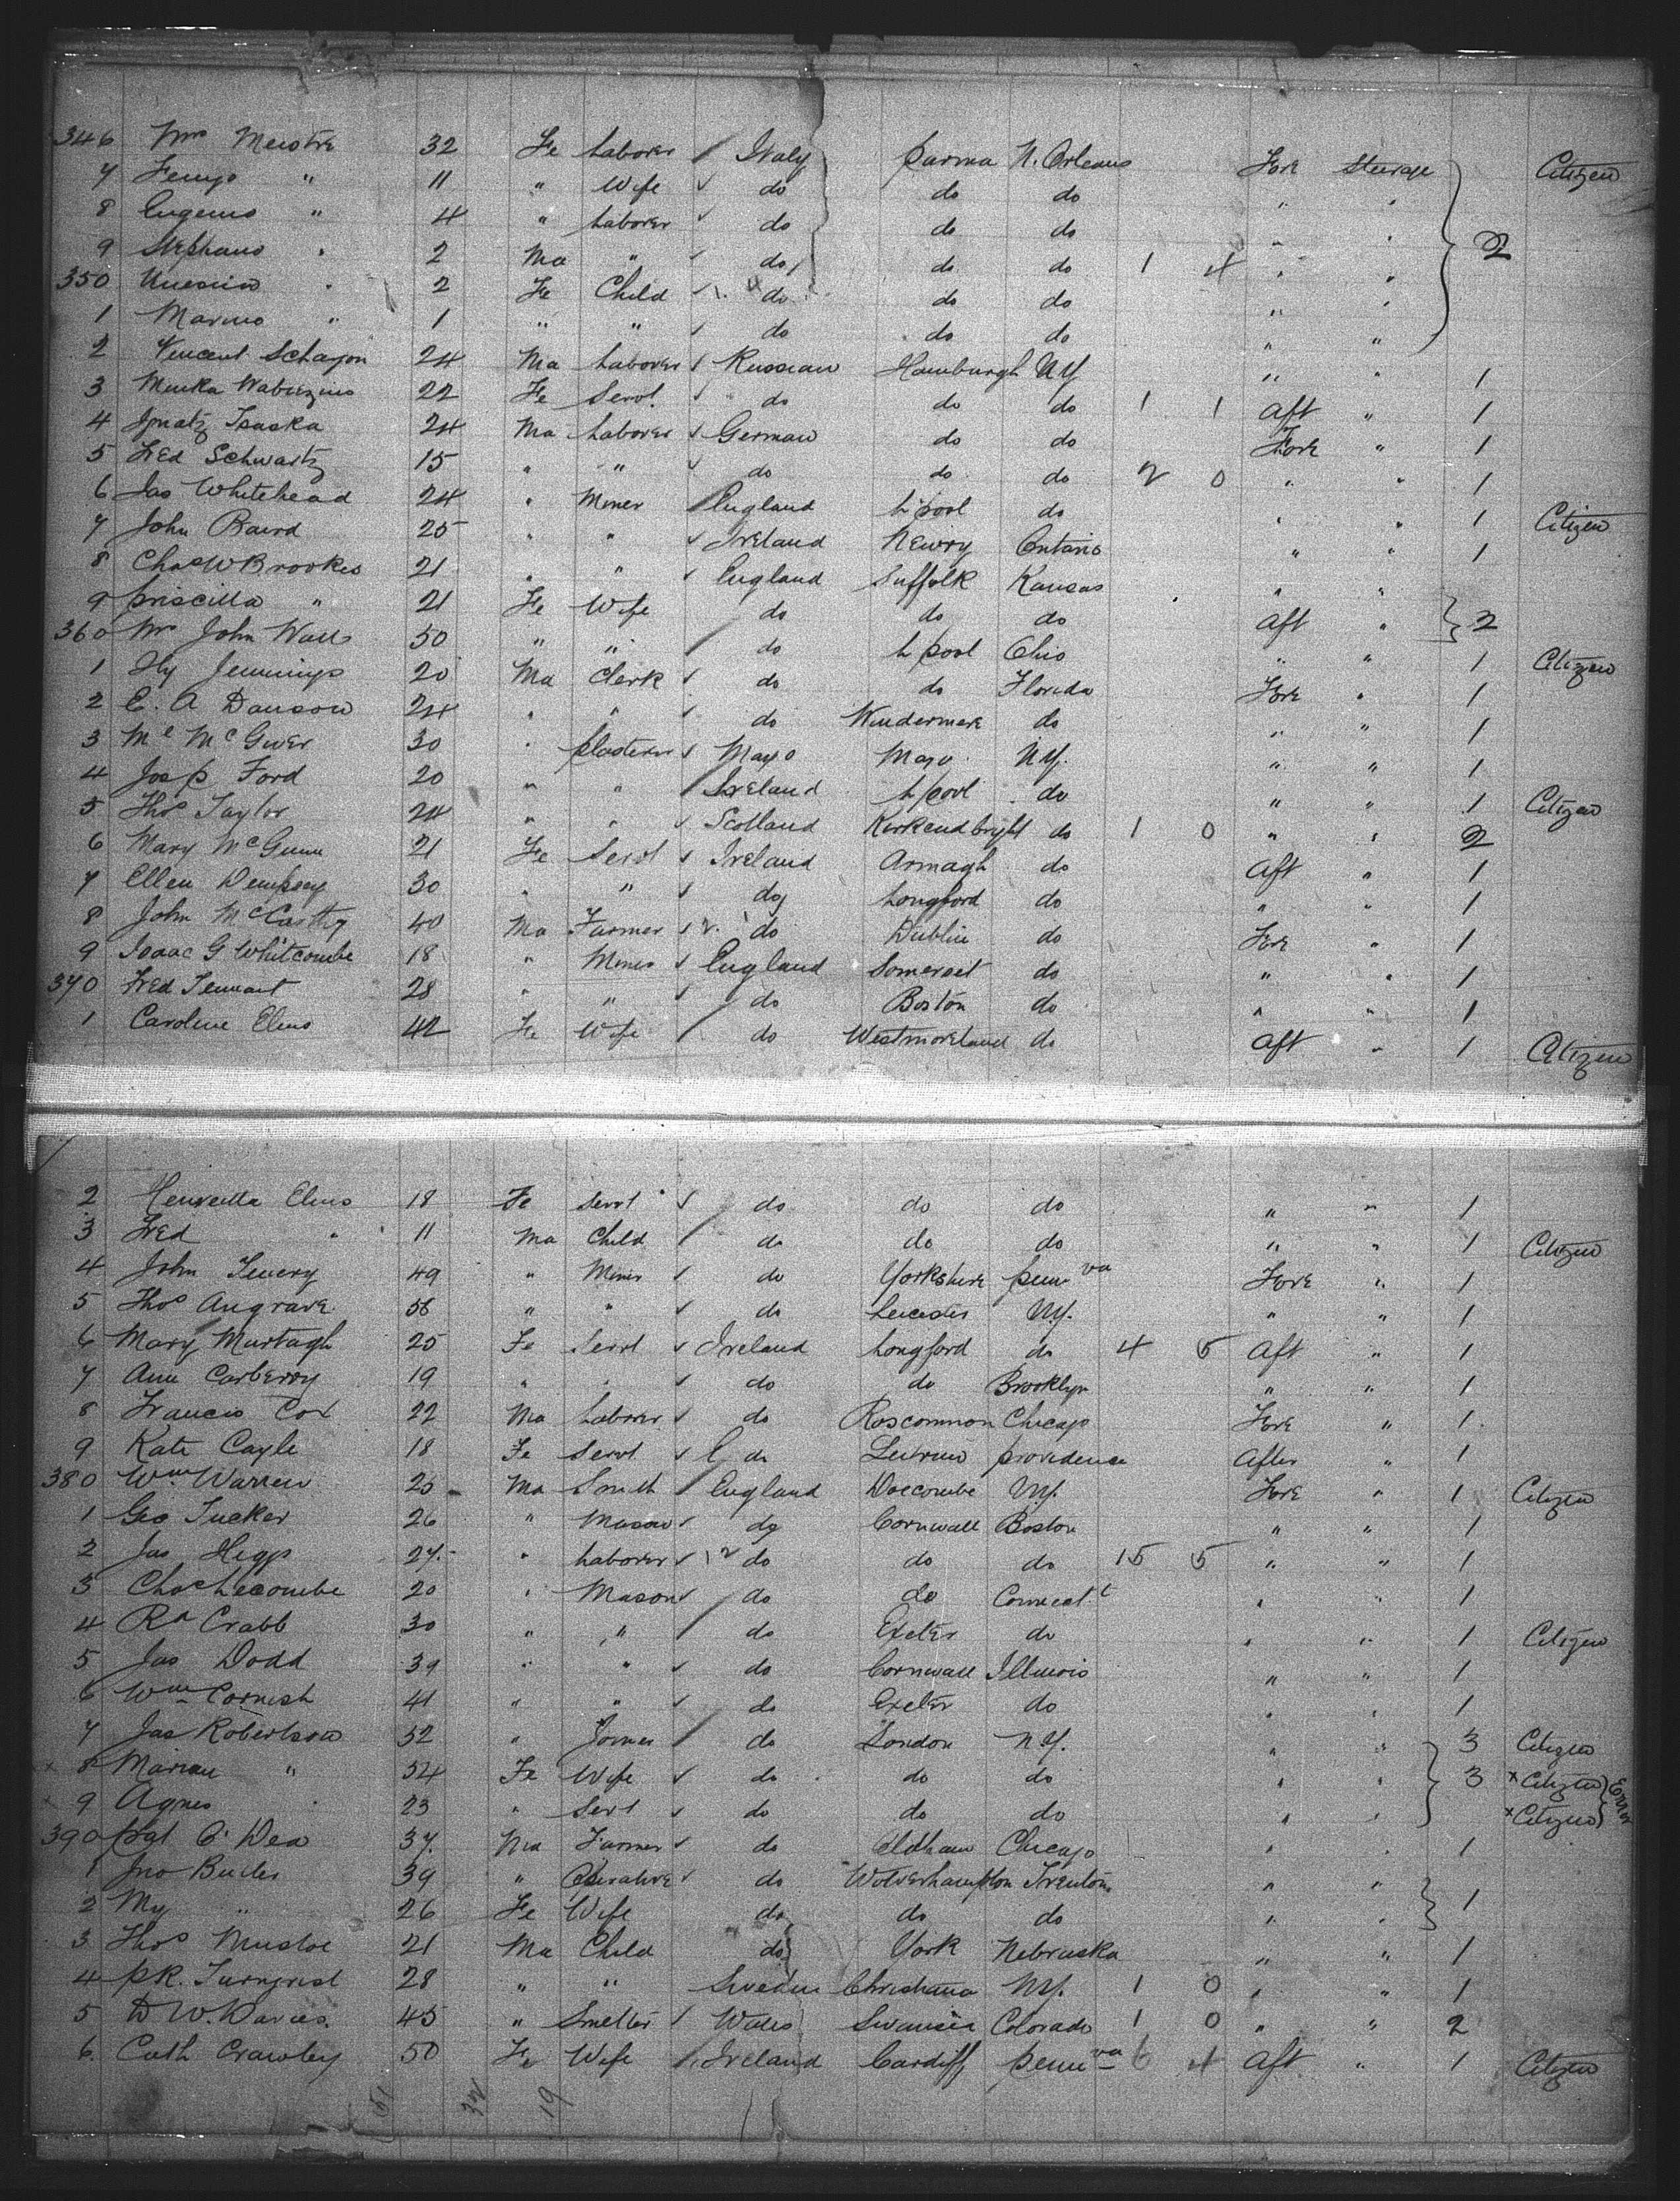 346 Mrs Meistre 32 Fe Laborer Italy Parma N. Orleans Fore Steerage Citizen
7 " 11 " Wife do do do " "
8 Eugenio " 4 " Laborer do do do " " 2
9 Stephano " 2 Ma " do do do 1 4 " "
350 " 2 Fe Child do do do " "
1 Marino " 1 " " do do do " "
2 Vincent Schajon 24 Ma Laborer Russian Hamburgh NY " " 1
3 22 Fe Servt. do do do 1 1 Aft " 1
4 Ignatz 24 Ma Laborer German do do Fore " 1
5 Fred Schwartz 15 " " do do do 2 0 " " 1
6 Jas Whitehead 24 " Miner England L'pool do " " 1 Citizen
7 John Baird 25 " " Ireland Newry Ontario " " 1
8 Chas W Brookes 21 " " England Suffolk Kansas " "
9 Priscilla " 21 Fe Wife do do do Aft " 2
360 Mrs John Walls 50 " " do L'pool Ohio " " 1 Citizen
1 Hy Jennings 20 Ma Clerk do do Florida Fore " 1
2 E. A Danson 24 " " do Windermere do " " 1
3 Ml McGiver 30 " Plasterer Mayo Mayo NY. " " 1
4 Josp Ford 20 " " Ireland L'pool do " " 1 Citizen
5 Thos Taylor 24 " " Scotland Kirkcudbright do 1 0 " " 2
6 Mary McGunn 21 Fe Servt Ireland Armagh do Aft " 1
7 Ellen Dempsey 30 " " do Longford do " " 1
8 John McCarthy 40 Ma Farmer do Dublin do Fore " 1
9 Isaac G Whitcombe 18 " Miner England Somerset do " " 1
370 Fred Tennant 28 " " do Boston do " " 1
1 Caroline Elms 42 Fe Wife do Westmoreland do Aft " 1 Citizen
2 Henrietta Elms 18 Fe Servt do do do " " 1
3 Fred " 11 Ma Child do do do " " 1 Citizen
4 John 49 " Miner do Yorkshire Pennva Fore " 1
5 Thos Angrave 56 " " do Leicester NY. " " 1
6 Mary Murtagh 25 Fe Servt Ireland Longford do 4 5 Aft " 1
7 Ann Carberry 19 " " do do Brooklyn " " 1
8 Francis Cox 22 Ma Laborer do Roscommon Chicago Fore " 1
9 Kate Cayle 18 Fe Servt do Leitrim Providence After " 1
380 Wm Warren 25 Ma Smith England NY. Fore " 1 Citizen
1 Geo Tucker 26 " Mason do Cornwall Boston " " 1
2 Jas Higgs 27 " Laborer 12 do do do 15 5 " " 1
3 Chas Lecombe 20 " Mason do do Connect.t " " 1
4 Rd Crabb 30 " " do Exeter do " " 1 Citizen
5 Jas Dodd 39 " " do Cornwall Illinois " " 1
6 Wm Cornish 41 " " do Exeter do " " 1
7 Jas Robertson 52 " Joiner do London N.Y. " " 3 Citizen
8 Marian " 54 Fe Wife do do do " " 3 x Citizen Error
9 Agnes " 23 " Servt do do do " " x Citizen
390 Pat O'Dea 37 Ma Farmer do Oldham Chicago " " 1
1 Jno Butler 39 " Operative do Wolverhampton Trenton " "
2 My " 26 Fe Wife do do do " " 1
3 Thos Mustoe 21 Ma Child do York Nebraska " " 1
4 PR. Turnqvist 28 " " Sweden Christiana NY. 1 0 " " 1
5 D W. Davies. 45 " Smelter Wales Swansea Colorado 1 0 " " 2
6. Cath Crawley 50 Fe Wife Ireland Cardiff Pennva 6 4 Aft " 1 Citizen
51 32 19